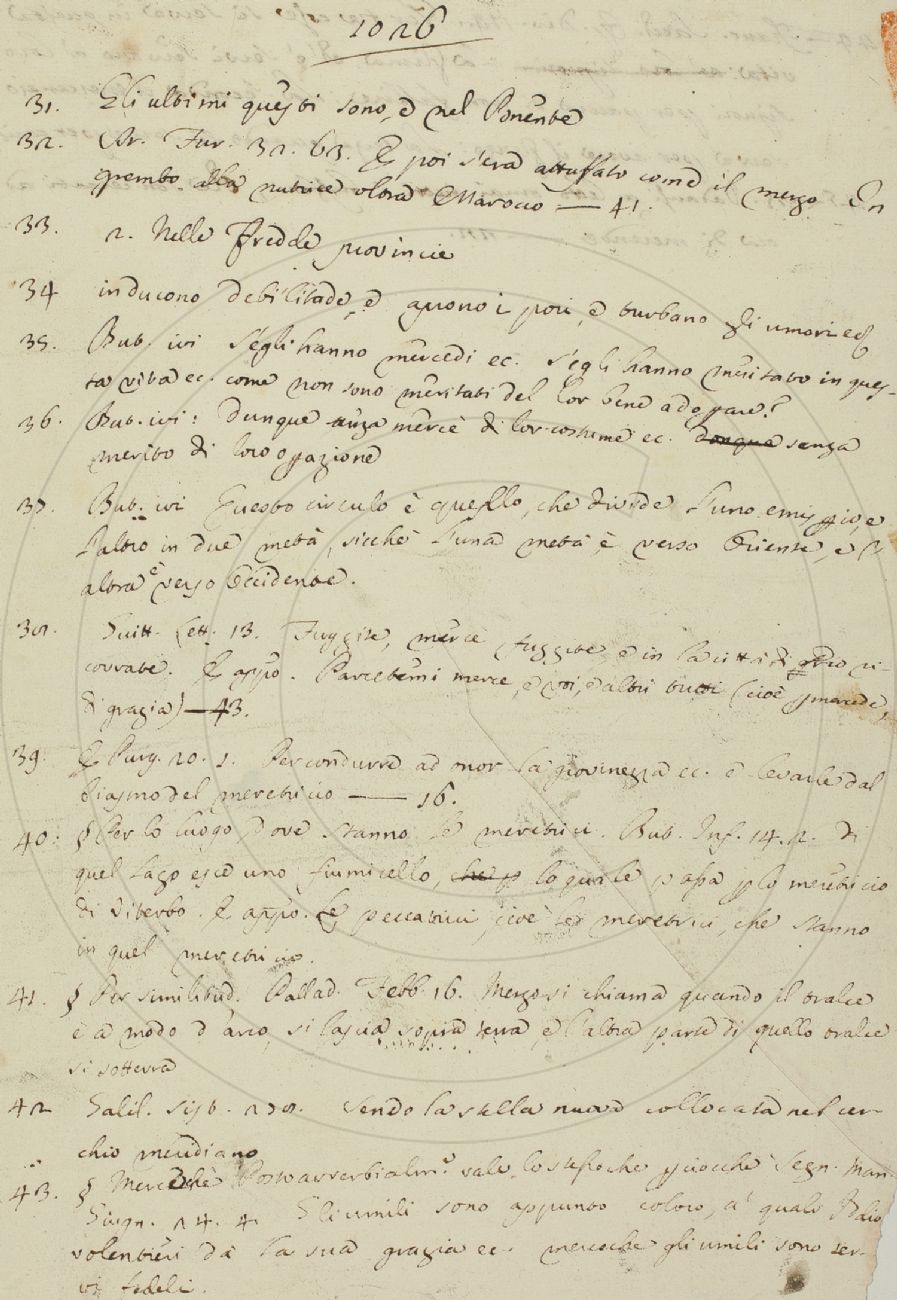 1026
31. Gli ultimi questi sono, e nel Ponente
32. Ar. Fur. 32. 63. E poi s'era attuffato come il mergo In
grembo alla nutrice oltra Marocco — 41.
33. 2. Nelle fredde provincie
34 inducono debilitade, e aprono i pori, e turbano gli umori ec
35. But. ivi S'egli hanno mercedi ec. s'egli hanno meritato in ques-
ta vita ec. come non sono meritati del lor bene adoprare?
36. But. ivi: Dunque sanza mercè di lor costume ec. senza
merito di loro operazione
37. But. ivi Questo circulo è quello, che divide l'uno emisperio, e
l'altro in due metà, sicchè l'una metà è verso Oriente, e l'
altra è verso Occidente.
38. Guitt. Lett. 13. Fuggite, merce fuggite e in la città di
corrate. E appo. Parcetemi merce, e voi, e altri tutti (cioè per mercede,
di grazia) — 43.
39. E Purg. 20. 1. Per condurre ad onor la giovinezza ec. e levarle dal
biasmo del meretricio — 16.
40. § Per lo luogo, dove stanno le meretrici. But. Inf. 14. 2. di
quel lago esce uno fiumicello, lo quale passa p lo meretricio
di Viterbo. E appo. Le peccatrici, cioè le meretrici, che stanno
in quel meretricio.
41. § Per similitud. Pallad. Febb. 16. Mergo si chiama quando il tralce
è a modo d'arco, si lascia sopra terra, e l'altra parte di quello tralce
si sotterra
42 Galil. Sist. 278. Sendo la stella nuova collocata nel cer-
chio meridiano
43. § Mercechè Posto avverbialm.e vale lo stesso che perciocchè Segn. Man.
Giugn. 24. 4. Gli umili sono appunto coloro, a' quali Iddio
volentieri dà la sua grazia ec. mercechè gli umili sono ser-
vi fedeli.